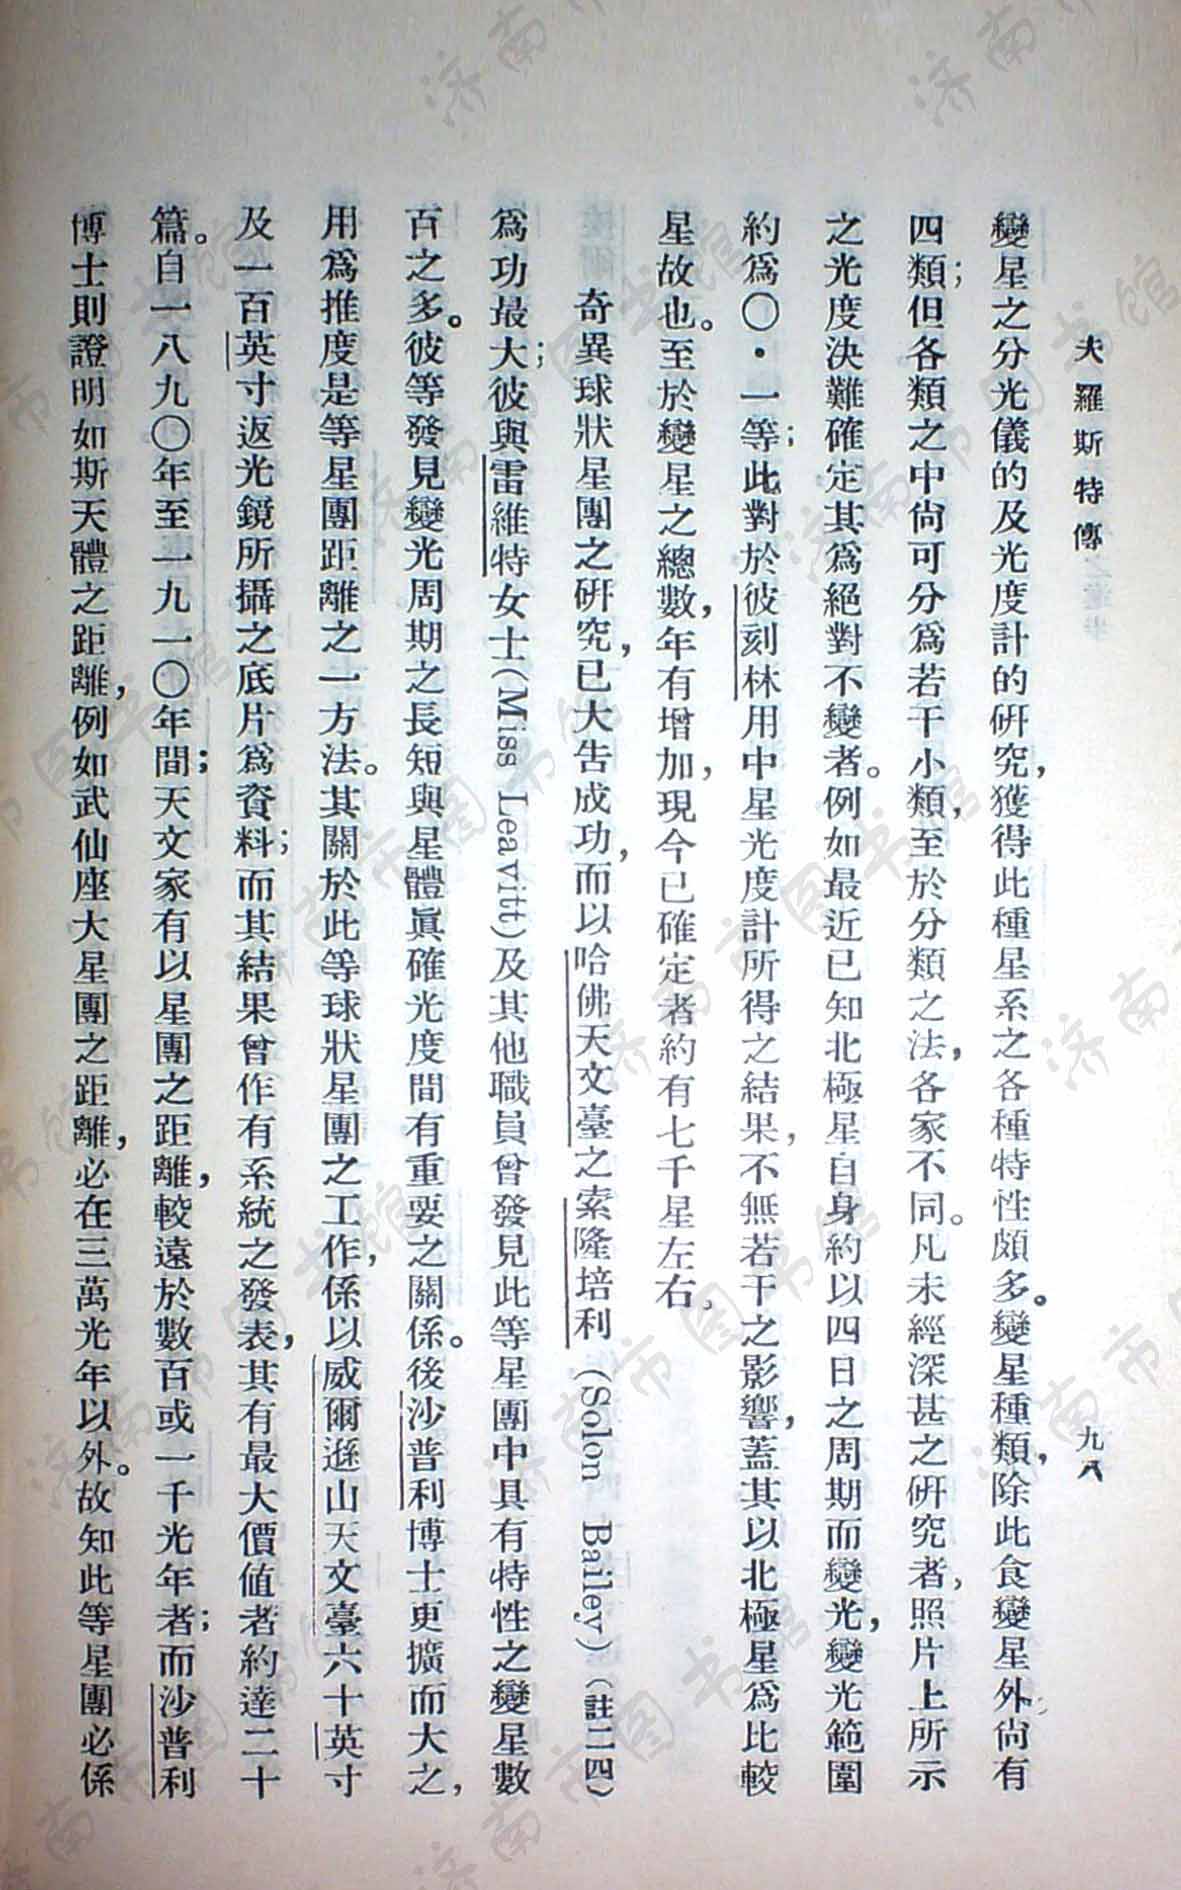 夫羅斯特傳
九八
變星之分光儀的及光度計的研究，獲得此種星系之各種特性頗多。變星種類，除此食變星外尙有
四類；但各類之中尙可分爲若干小類，至於分類之法，各家不同。凡未經深甚之研究者，照片上所示
之光度決難確定其爲絕對不變者。例如最近已知北極星自身約以四日之周期而變光，變光範圍
約爲〇・一等；此對於彼刻林用中星光度計所得之結果，不無若干之影響，蓋其以北極星爲比較
星故也。至於變星之總數，年有增加，現今已確定者約有七千星左右。
奇異球狀星團之研究，已大告成功，而以哈佛天文臺之索隆培利（Solon Bailey）（註二四）
爲功最大；彼與雷維特女士（Miss Leavitt）及其他職員曾發見此等星團中具有特性之變星數
百之多。彼等發見變光周期之長短與星體眞確光度間有重要之關係。後沙普利博士更擴而大之，
用爲推度是等星團距離之一方法。其關於此等球狀星團之工作，係以威爾遜山天文臺六十英寸
及一百英寸返光鏡所攝之底片爲資料；而其結果曾作有系統之發表，其有最大價值者約達二十
篇。自一八九〇年至一九一〇年間；天文家有以星團之距離，較遠於數百或一千光年者；而沙普利
博士則證明如斯天體之距離，例如武仙座大星團之距離，必在三萬光年以外。故知此等星團必係
济南市图书馆